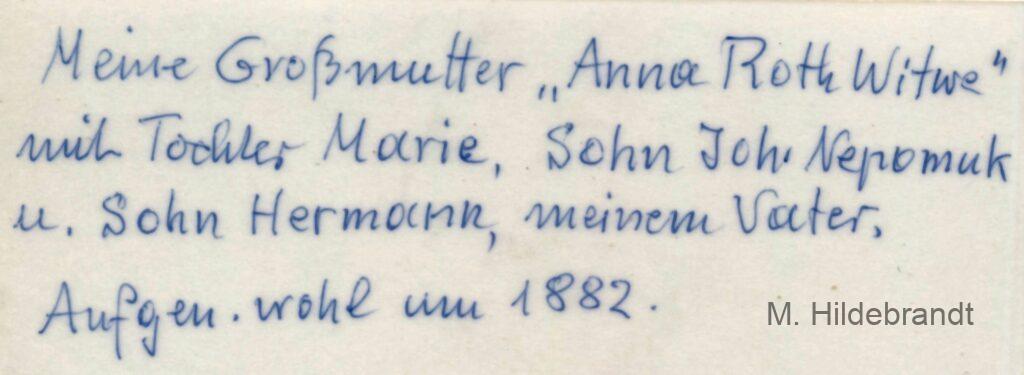 Meine Großmutter „Anna Roth Witwe"
mit Tochter Marie, Sohn Joh. Nepomuk
u. Sohn Hermann, meinem Vater.
Aufgen. wohl um 1882.
M. Hildebrandt